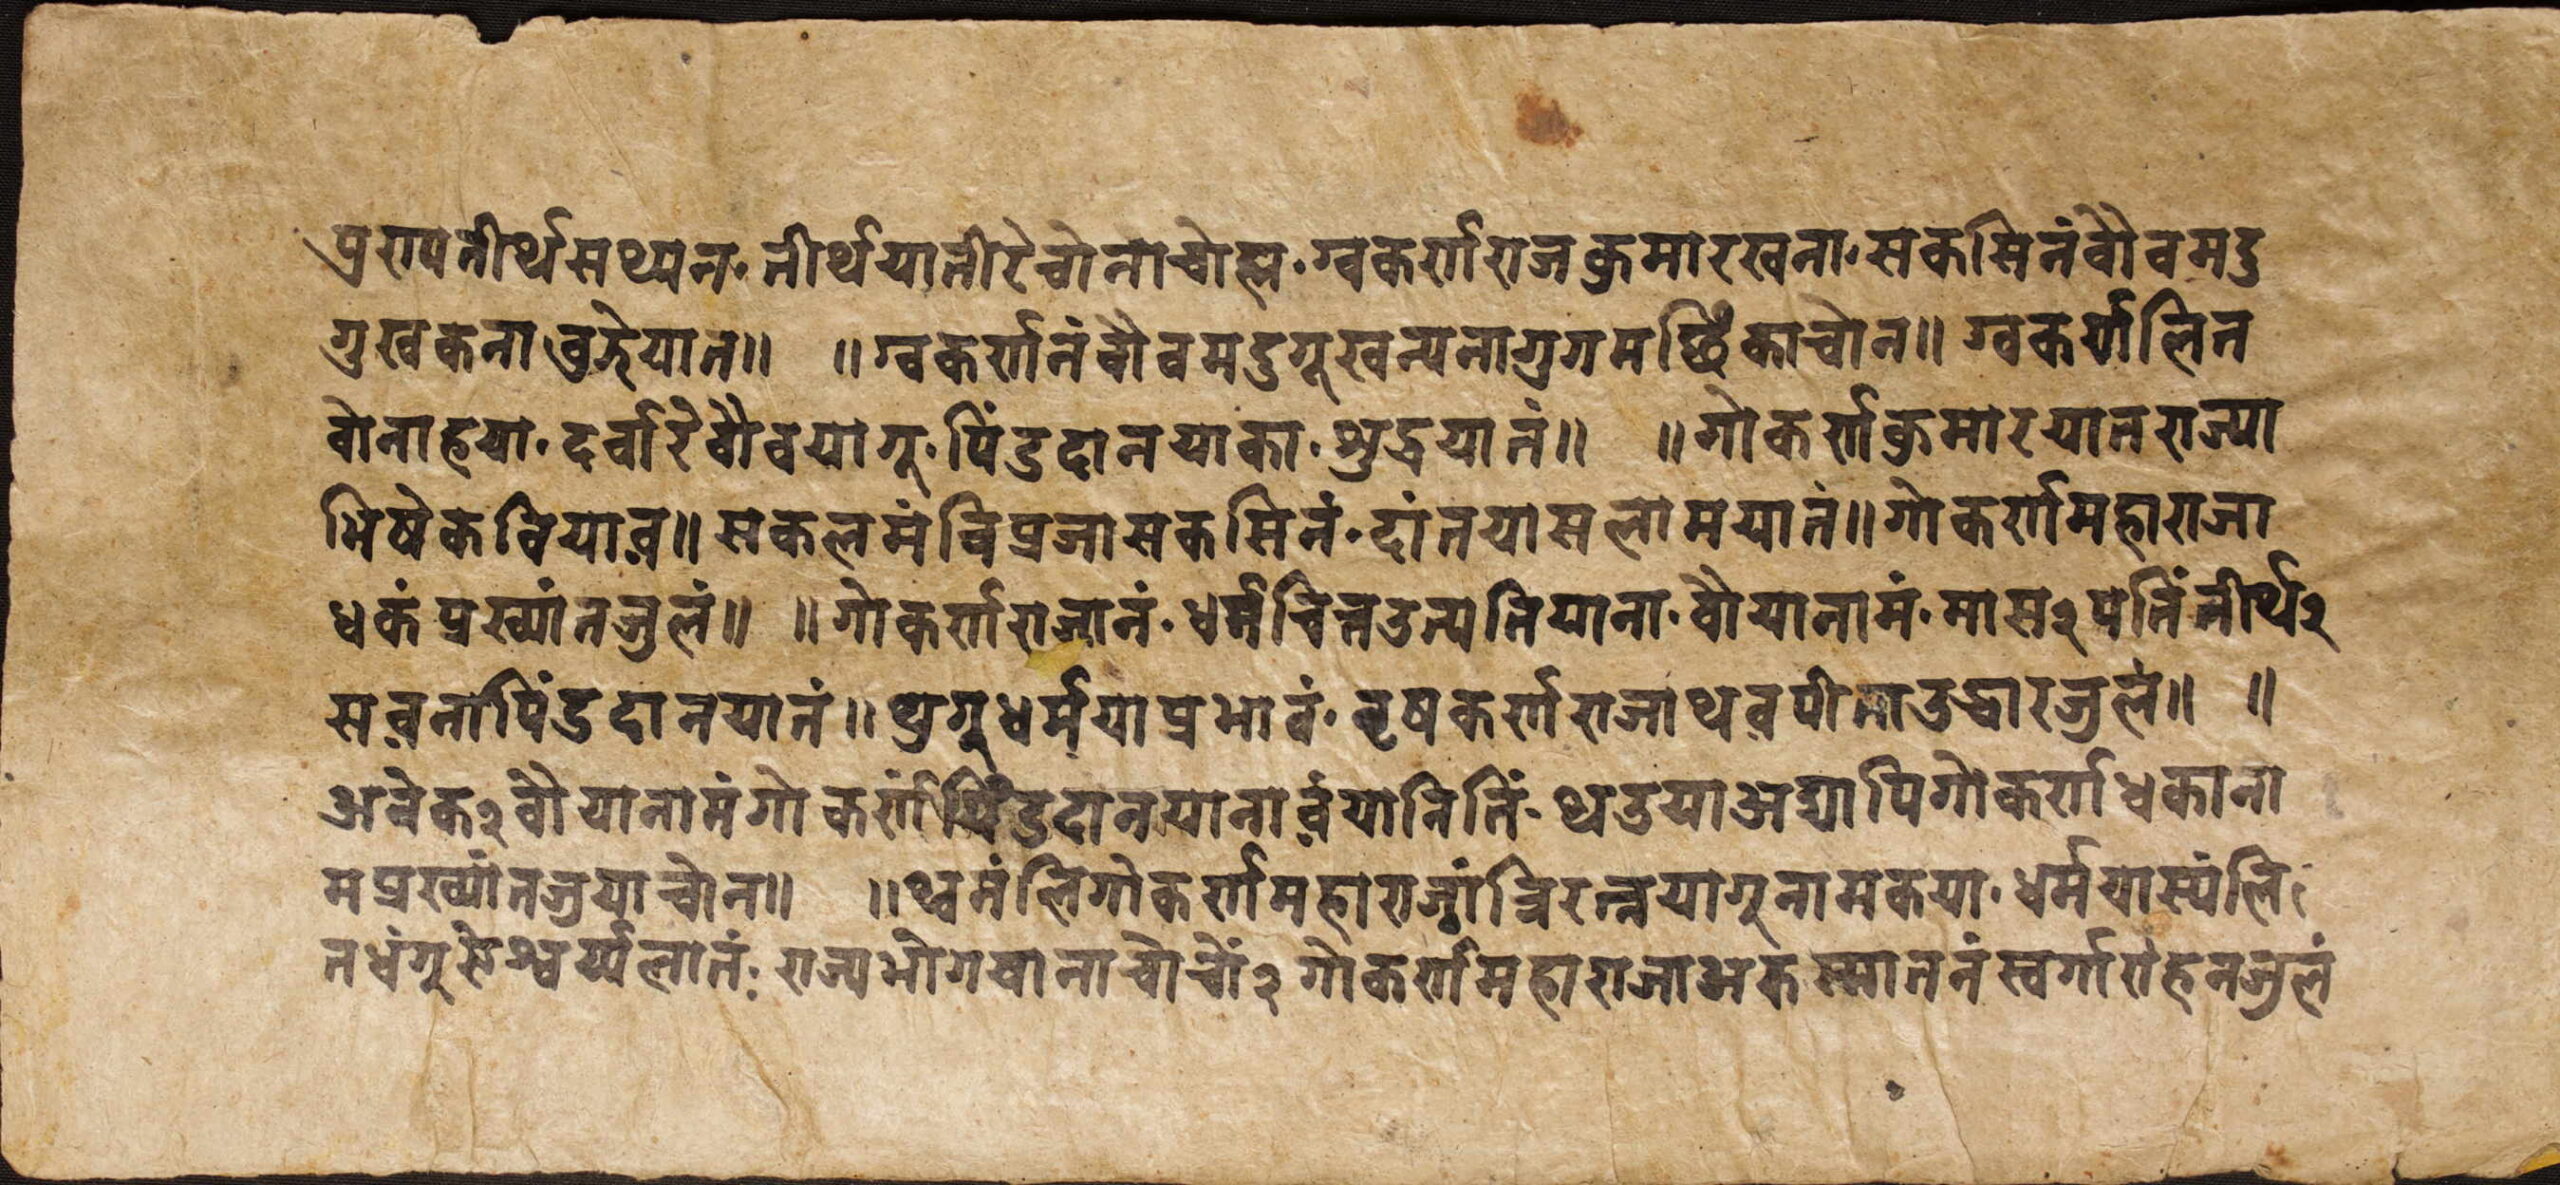 प्ररापतीर्थसथ्यन॰ तीर्थयातीरेचोनाचोह्म॰ ग्वकर्णराजकुमारखना॰ सकसिनंबौवमदु
गुखकना वुझेयात॥ ॥ग्वकर्णनंबौवमदुगूखन्यनागुगमछिंकाचोन॥ ग्वकर्णलित
वोनाहया॰ दर्वारेबौवयागू॰ पिंडदानयाका॰ श्रुद्रयातं॥ ॥गोकर्णकुमारयातराज्या
भिषेकवियाव॥ सकलमंत्रिप्रजासकसिनं॰ दांतयासलामयातं॥गोकर्णमहाराजा
धकं प्रख्यांतजुलं॥ ॥गोकर्णराजानं॰ धर्मचित्तउत्पतियाना॰ बौयानामं॰ मास२पतिंतीर्थ२
सवनापिंडदानयातं॥ थुगूधर्मयाप्रभावं॰ वृषकर्णराजाथवपीताउद्धारजुलं॥ ॥
अनेक२बौयानामंगोकर्णपिंडदानयानावंयानितिं॰ थ्वउयाअद्यापिगोकर्णधकाना
मप्रख्यांतजुयाचोन॥ ॥थ्वमंलिगोकर्णमहाराजांत्रिरत्नयागूनामकया॰ धर्मयास्यंलि
तधंगूऐश्वर्य्यलातं॰ राज्यभोगयानाचोचों२ गोकर्णमहाराजाअकस्मातनंस्वर्गारोहनजुलं